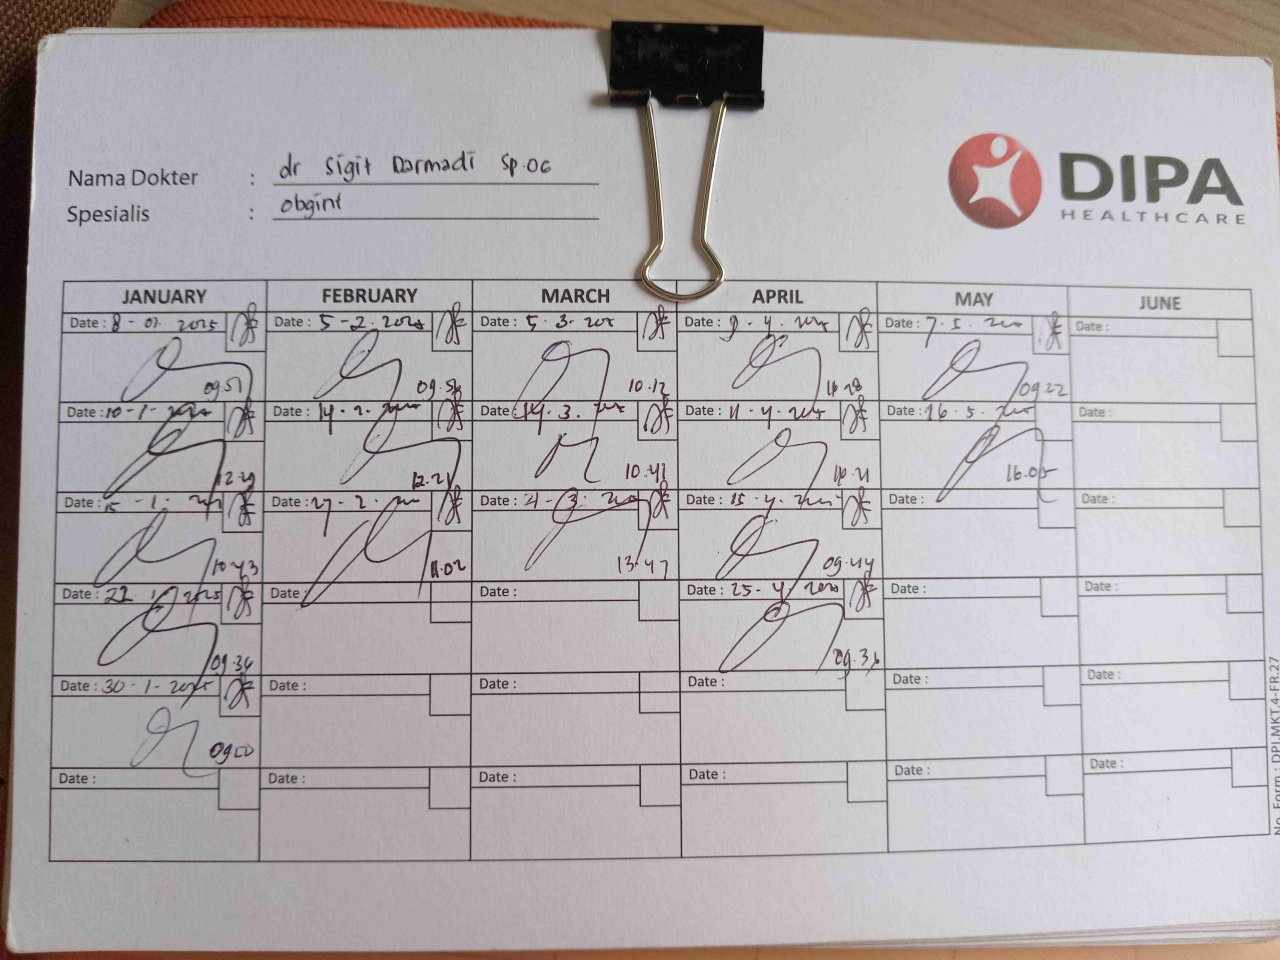 Nama Dokter : dr Sigit Darmadi Sp.OG
Spesialis : obgint
DIPA
HEALTHCARE
JANUARY FEBRUARY MARCH APRIL MAY JUNE
Date : 8 - 01 2025 Date : 5 - 2 . 2025 Date : 5 . 3 . Date : 9 . 4 . Date : 7 . 5 . Date :
09.51 09.56 10.12 09.22
Date : 10 - 1 - Date : 14 . 2 . Date : 14 . 3 . Date : 11 . 4 . Date : 16 . 5 . Date :
12.29 12.21 10.41 16.05
Date : 15 - 1 . Date : 27 - 2 . Date : 3 . Date : 15 . 4 . Date : Date :
10.43 11.02 13.47 09.44
Date : 22 1 2025 Date : Date : Date : 25 . 4 Date : Date :
09.34 09.36
Date : 30 - 1 - 2025 Date : Date : Date : Date : Date :
09.50
Date : Date : Date : Date : Date : Date :
No. Form : DPI.MKT.4-FR.27